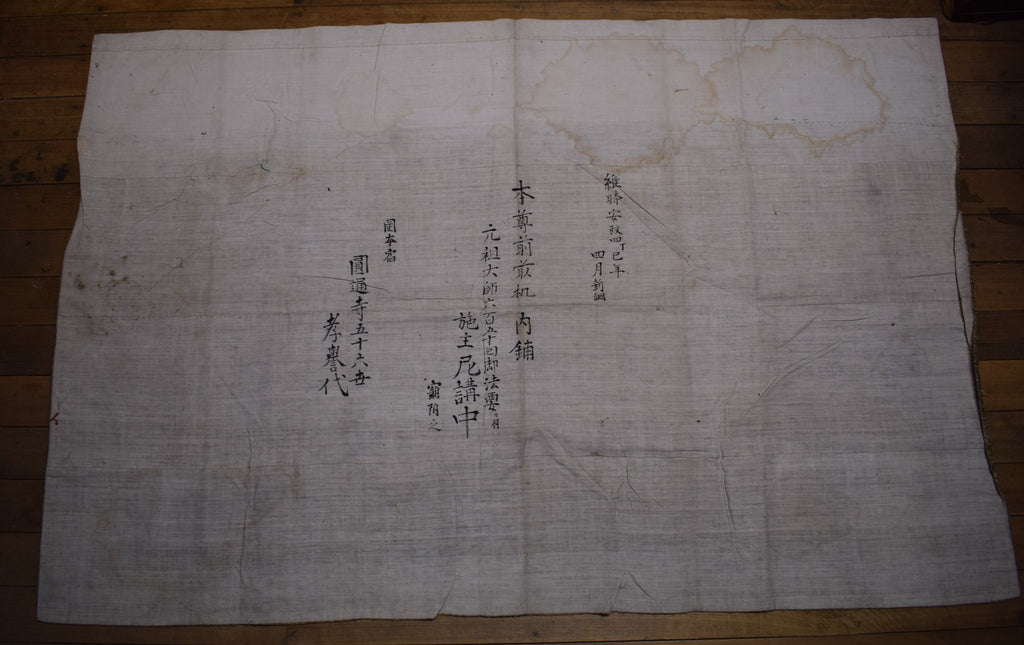 維時安政四丁巳年
四月新調
本尊前前机 内鋪
元祖大師六百五十回御法要ニ付
施主 尼講中
寄附之
岡本宿
圓通寺五十六世
孝譽代